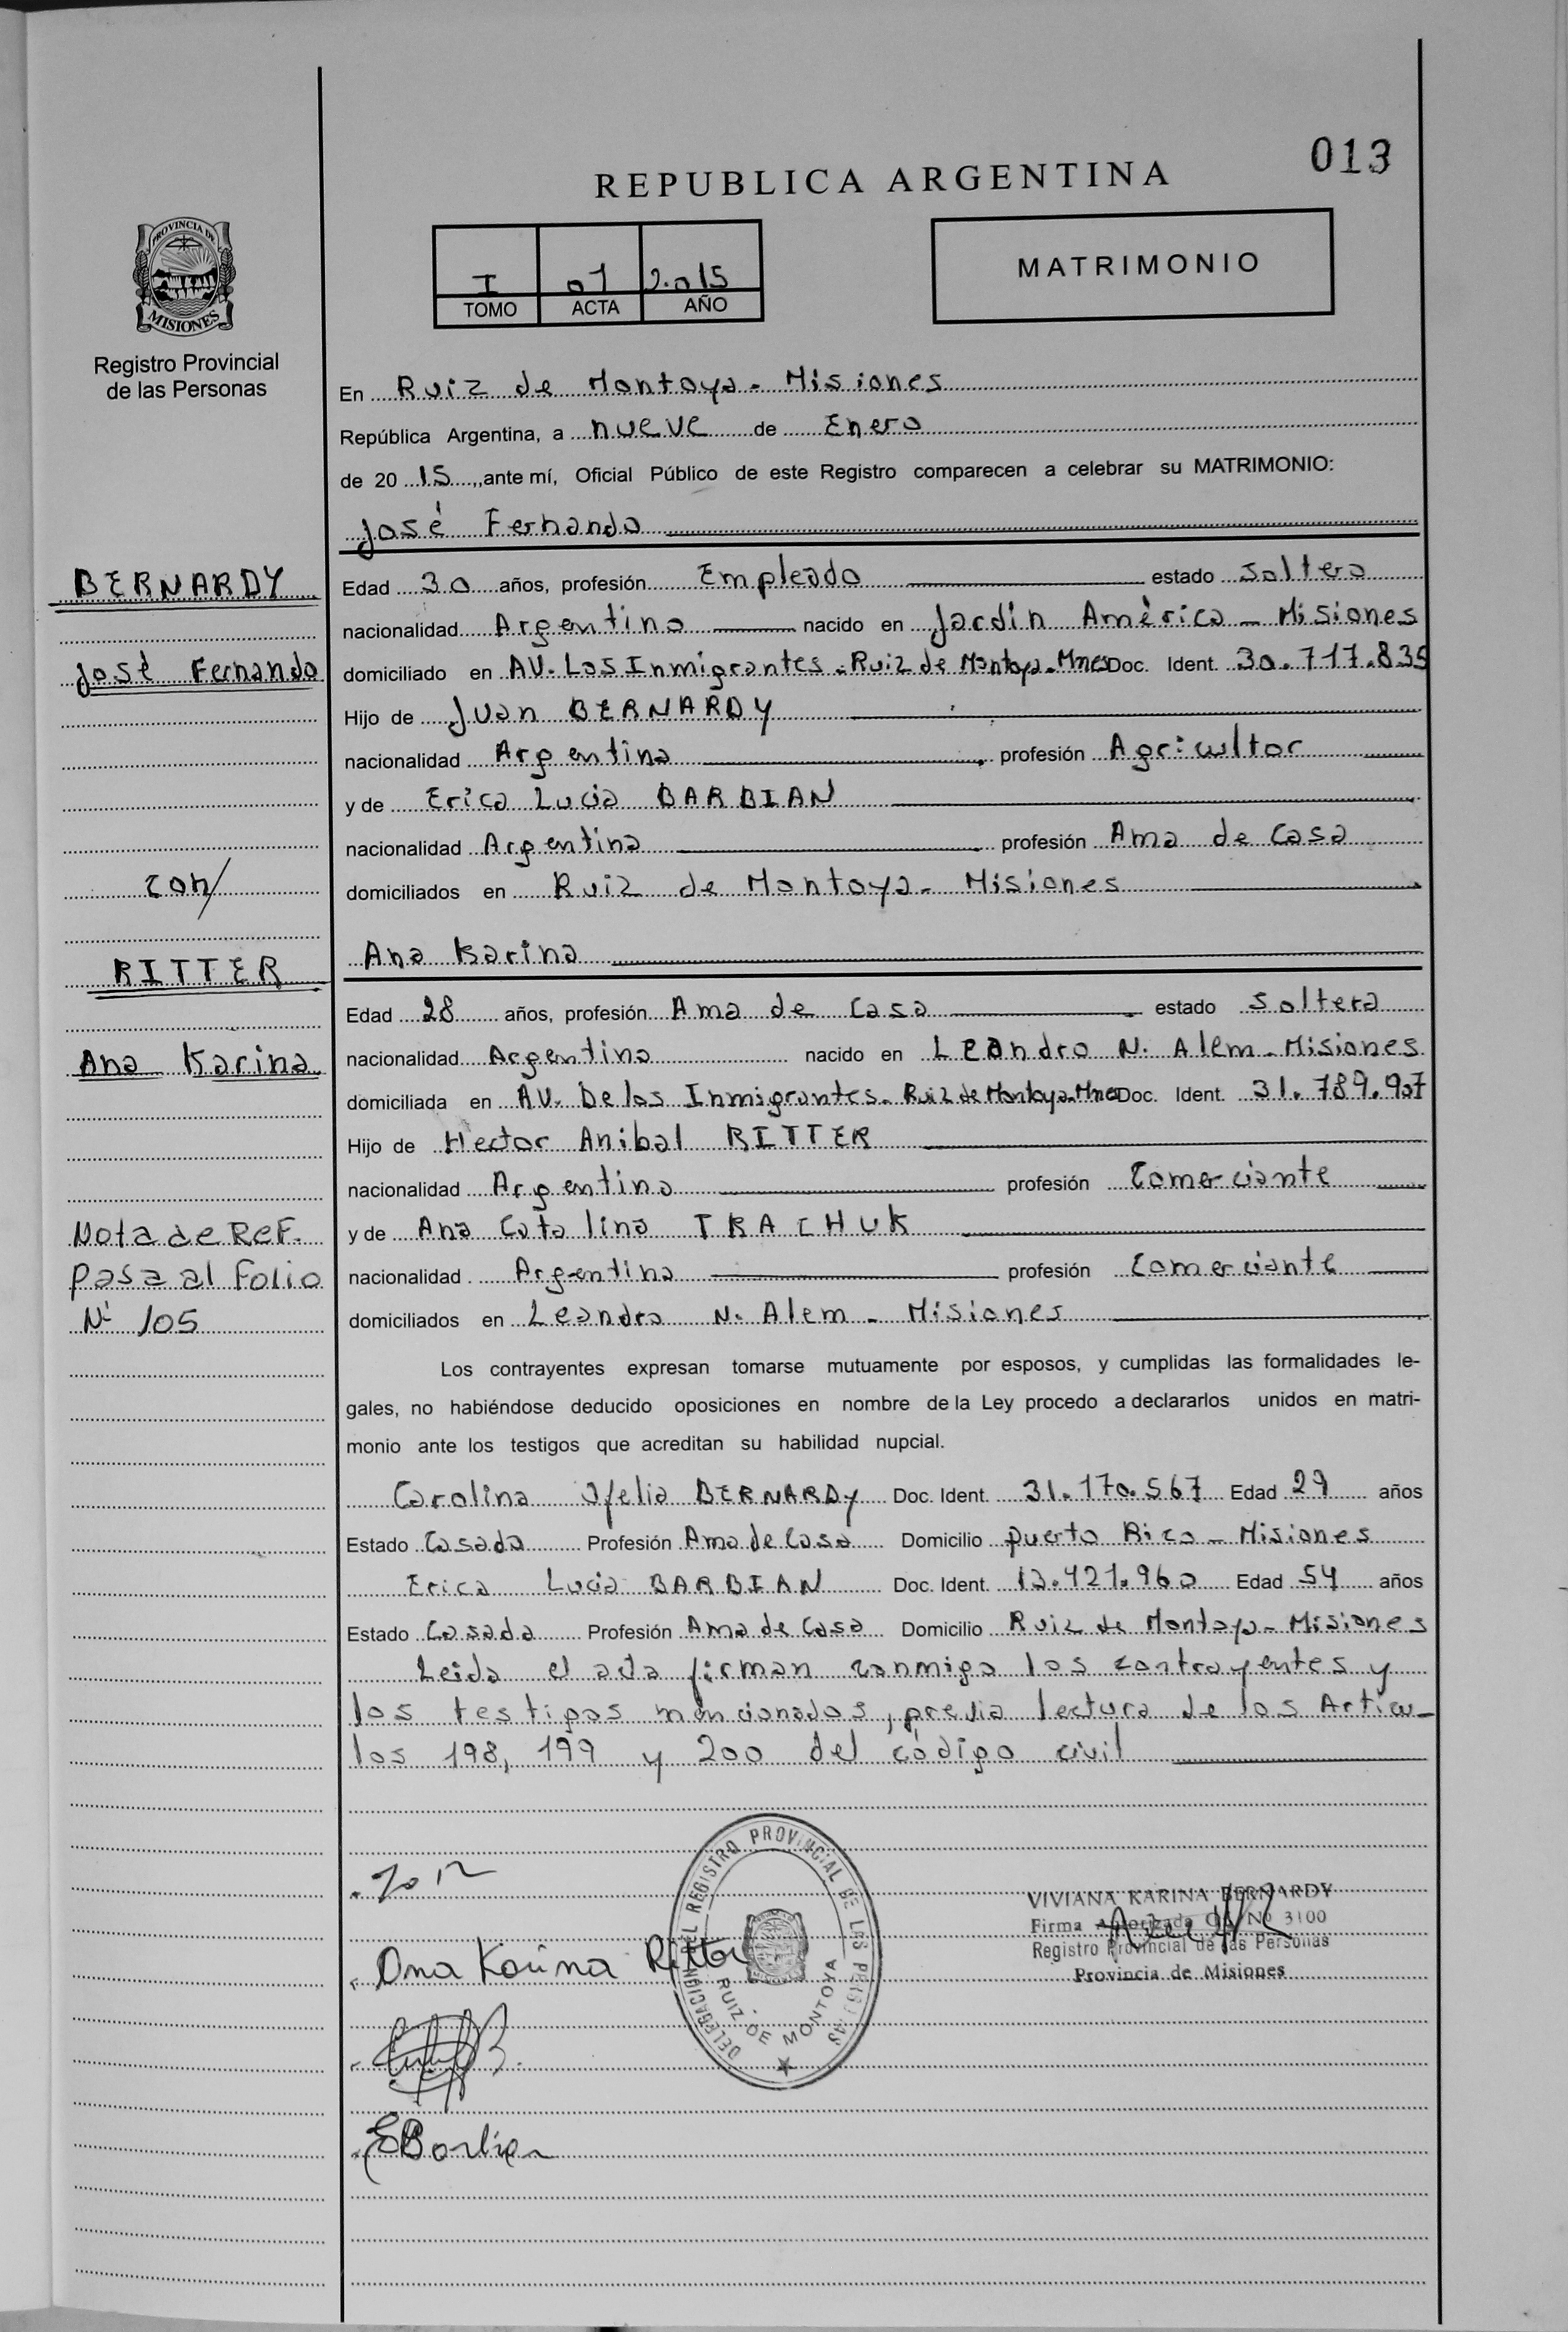 013
REPUBLICA ARGENTINA
PROVINCIA DE
MISIONES
Registro Provincial
de las Personas
I 01 2.015
TOMO ACTA AÑO
MATRIMONIO
En Ruiz de Montoya - Misiones
República Argentina, a nueve de Enero
de 20 15, ante mí, Oficial Público de este Registro comparecen a celebrar su MATRIMONIO:
José Fernando
BERNARDY
José Fernando
Edad 30 años, profesión Empleado estado soltero
nacionalidad Argentino nacido en Jardín América - Misiones
domiciliado en AV. Los Inmigrantes - Ruiz de Montoya - Mnes Doc. Ident. 30.717.835
Hijo de Juan BERNARDY
nacionalidad Argentina profesión Agricultor
y de Erica Lucia BARBIAN
nacionalidad Argentina profesión Ama de Casa
domiciliados en Ruiz de Montoya - Misiones
con/
Ana Karina
RITTER
Ana Karina
Edad 28 años, profesión Ama de Casa estado soltera
nacionalidad Argentina nacido en Leandro N. Alem - Misiones
domiciliada en AV. De los Inmigrantes - Ruiz de Montoya - Mnes Doc. Ident. 31.789.907
Hijo de Hector Anibal RITTER
nacionalidad Argentina profesión Comerciante
y de Ana Catalina TRACHUK
nacionalidad Argentina profesión Comerciante
domiciliados en Leandro N. Alem - Misiones
Nota de Ref.
pasa al Folio
Nº 105
Los contrayentes expresan tomarse mutuamente por esposos, y cumplidas las formalidades le-
gales, no habiéndose deducido oposiciones en nombre de la Ley procedo a declararlos unidos en matri-
monio ante los testigos que acreditan su habilidad nupcial.
Carolina Ofelia BERNARDY Doc. Ident. 31.170.567 Edad 29 años
Estado Casada Profesión Ama de Casa Domicilio puerto Rico - Misiones
Erica Lucia BARBIAN Doc. Ident. 13.421.960 Edad 54 años
Estado Casada Profesión Ama de Casa Domicilio Ruiz de Montoya - Misiones
Leida el acta firman conmigo los contrayentes y
los testigos mencionados, previa lectura de los Artícu-
los 198, 199 y 200 del código civil
Ana Karina Ritter
DELEGACION DEL REGISTRO PROVINCIAL DE LAS PERSONAS
RUIZ DE MONTOYA
VIVIANA KARINA BERNARDY
Firma Autorizada Of. Nº 3100
Registro Provincial de las Personas
Provincia de Misiones
EBarbian